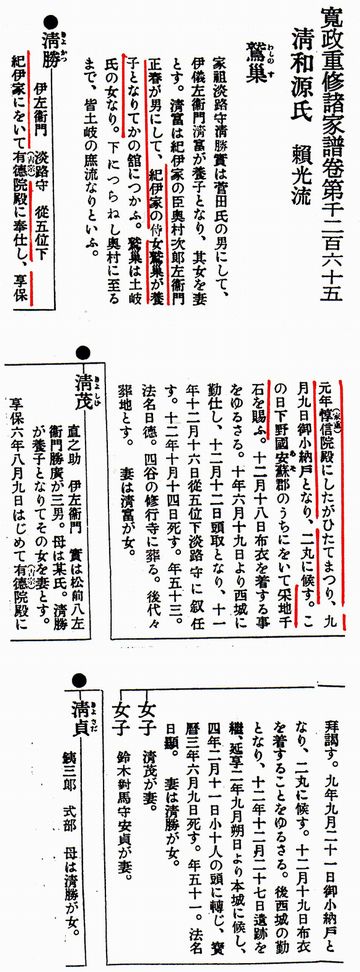 寛政重修諸家譜卷第千二百六十五
淸和源氏 賴光流
鷲巢
わしのす
家祖淡路守淸勝實は菅田氏の男にして、
伊儀左衞門淸富が養子となり、其女を妻
とす。淸富は紀伊家の臣奥村次郎左衞門
正春が男にして、紀伊家の侍女鷲巢が養
子となりてかの館につかふ。鷲巢は土岐
氏の女なり。下につらねし奥村に至る
まで、皆土岐の庶流なりといふ。
●淸勝
きよかつ
伊左衞門 淡路守 從五位下
紀伊家にをいて有德院殿に奉仕し、享保
(吉宗)
元年惇信院殿にしたがひたてまつり、九
(家重)
月九日御小納戸となり、二丸に候す。こ
の日下野國安蘇郡のうちにをいて采地千
石を賜ふ。十二月十八日布衣を着する事
をゆるさる。十年六月十九日より西城に
勤仕し、十二月十二日頭取となり、十一
年十二月十六日從五位下淡路守に叙任
す。十二年十月十四日死す。年五十三。
法名日德。四谷の修行寺に葬る。後代々
葬地とす。 妻は淸富が女。
●淸茂
きよしげ
直之助 伊左衞門 實は松前八左
衞門勝廣が三男。母は某氏。淸勝
が養子となりてその女を妻とす。
享保六年八月九日はじめて有德院殿に
(吉宗)
拜謁す。九年九月二十一日御小納戸と
なり、二丸に候す。十二月十九日布衣
を着することをゆるさる。後西城の勤
となり、十二年十二月二十七日遺跡を
繼、延享二年九月朔日より本城に候し、
四年二月十一日小十人の頭に轉じ、寶
曆三年六月九日死す。年五十一。法名
日顯。 妻は淸勝が女。
女子 淸茂が妻。
女子 鈴木對馬守安貞が妻。
●淸貞
きよさだ
銕三郎 式部 母は淸勝が女。